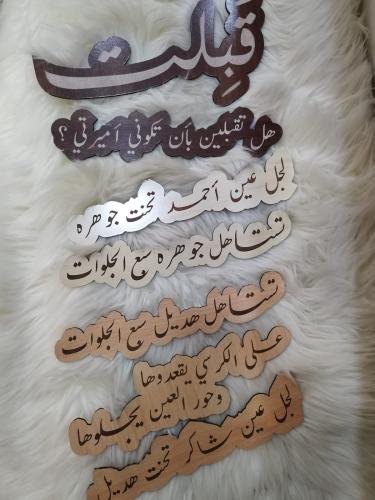 قَبِلت
هل تقبلين بأن تكوني أميرتي ؟
لجل عين أحمد تخت جوهره
تستاهل جوهره سبع الجلوات
تستاهل هديل سبع الجلوات
على الكرسي يقعدوها
وحور العين يجلوها
لجل عين شاكر تخت هديل